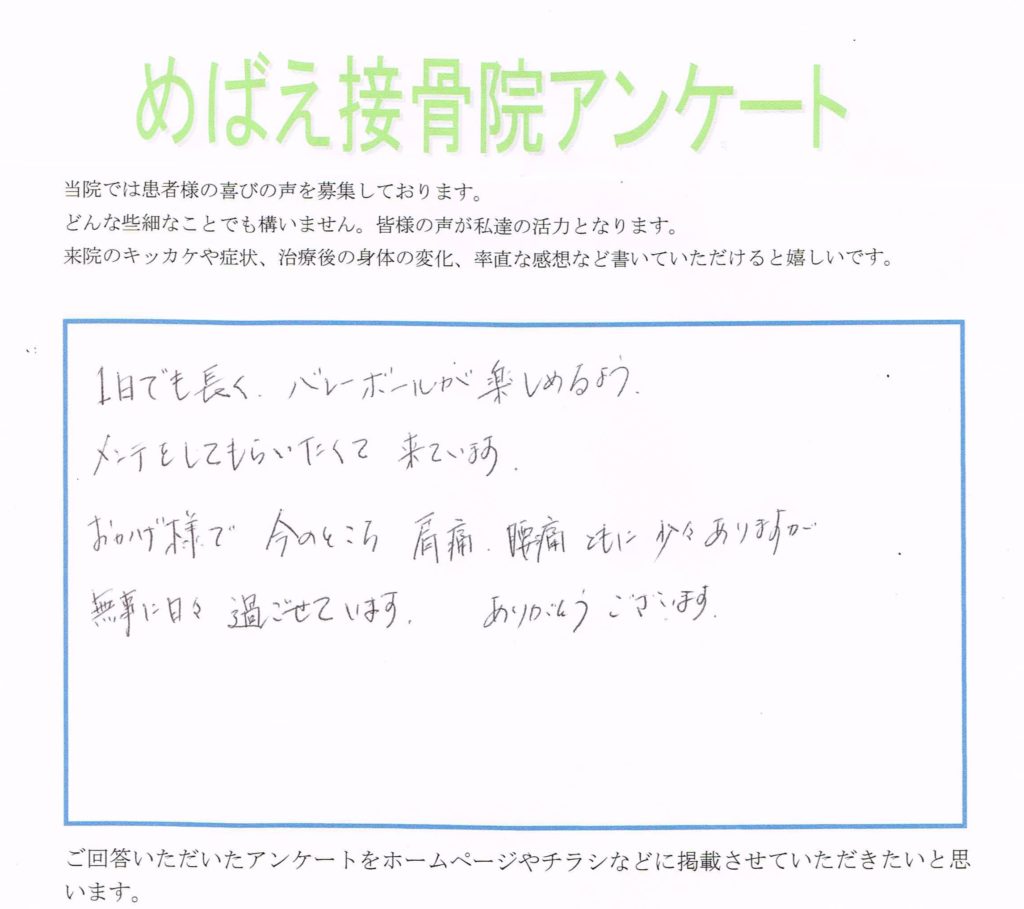 めばえ接骨院アンケート
当院では患者様の喜びの声を募集しております。
どんな些細なことでも構いません。皆様の声が私達の活力となります。
来院のキッカケや症状、治療後の身体の変化、率直な感想など書いていただけると嬉しいです。
1日でも長く、バレーボールが楽しめるよう、
メンテをしてもらいたくて 来ています。
おかげ様で 今のところ 肩痛、腰痛 ともに 少々ありますが
無事に日々 過ごせています。 ありがとう ございます。
ご回答いただいたアンケートをホームページやチラシなどに掲載させていただきたいと思
います。